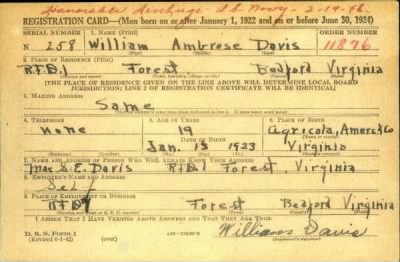 Honorable Discharge U.S. Navy - 2-19-46
REGISTRATION CARD—(Men born on or after January 1, 1922 and on or before June 30, 1924)
SERIAL NUMBER 1. NAME (Print) ORDER NUMBER
N 258 William Ambrose Davis 11876
(First) (Middle) (Last)
2. PLACE OF RESIDENCE (Print)
R.F.D.1 Forest Bedford Virginia
(Number and street) (Town, township, village, or city) (County) (State)
[THE PLACE OF RESIDENCE GIVEN ON THE LINE ABOVE WILL DETERMINE LOCAL BOARD
JURISDICTION; LINE 2 OF REGISTRATION CERTIFICATE WILL BE IDENTICAL]
3. MAILING ADDRESS
Same
4. TELEPHONE 5. AGE IN YEARS 6. PLACE OF BIRTH
None 19 Agricola, Amerst Co
DATE OF BIRTH
Jan. 15 1923 Virginia
7. NAME AND ADDRESS OF PERSON WHO WILL ALWAYS KNOW YOUR ADDRESS
Mrs S.E. Davis R.F.D.1 Forest, Virginia
8. EMPLOYER'S NAME AND ADDRESS
Self
9. PLACE OF EMPLOYMENT OR BUSINESS
Forest Bedford Virginia
I AFFIRM THAT I HAVE VERIFIED ABOVE ANSWERS AND THAT THEY ARE TRUE.
D. S. S. Form 1
(Revised 6-1-42) (over) William Davis
(Registrant's signature)